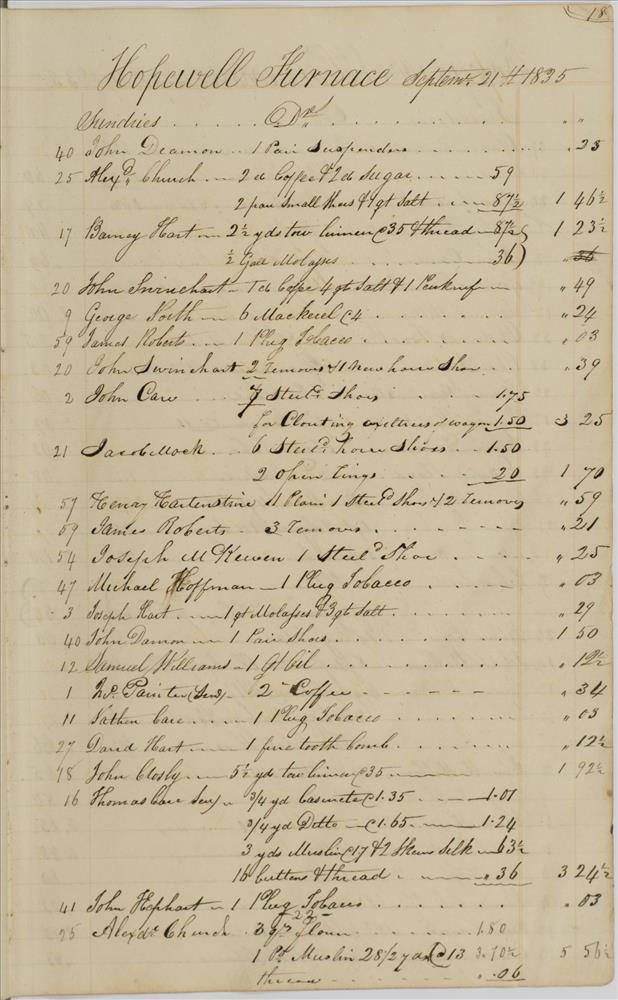 18
Hopewell Furnace Septemr. 21st 1835
Sundries Drs. " "
40 John Deamon 1 Pair Suspenders " 25
25 Alexdr. Church 2 lb Coffee & 2 lb Sugar 59
2 pair Small Shoes & 1 qt Salt 87½ 1 46½
17 Barney Hart 2½ yds tow linnen @35 & thread 87½ 1 23½
½ Gall Molasses 36 " 36
20 John Swinehart 1 lb Coffe 4 qt Salt & 1 Penknife " 49
9 George North 6 Mackerel @4 " 24
59 James Roberts 1 Plug Tobacco " 03
20 John Swinehart 2 Removes & 1 New horse Shoe " 39
2 John Care 7 Steeld. Shoes 1.75
for Clouting axeltrees of wagon 1.50 3 25
21 Jacob Mock 6 Steeld. horse Shoes 1.50
2 Open Rings 20 1 70
57 Henry Hartenstine 1 Plain 1 Steeld Shoe & 2 Removes " 59
59 James Roberts 3 Removes " 21
54 Joseph McKewen 1 Steeld Shoe " 25
47 Michael Hoffman 1 Plug Tobacco " 03
3 Joseph Hart 1 qt Molasses & 3 qt Salt " 29
40 John Damon 1 Pair Shoes 1 50
12 Samuel Williams 1 qt Oil " 12½
1 Painter (Senr) 2 " Coffee " 34
11 Nathen Care 1 Plug Tobacco " 03
27 David Hart 1 fine tooth Comb " 12½
18 John Closly 5½ yd tow linnen @35 1 92½
16 Thomas Care Senr ¾ yd Casinete @1.35 1.01
¾ yd Ditto @1.65 1.24
3 yds Muslin @17 & 2 Skeins Silk 63½
16 buttons & thread " 36 3 24½
41 John Hephart 1 Plug Tobacco " 03
25 Alexdr. Church 3 qr. Flour 1.80
1 Ps Muslin 28½ yds @13 3.70½ 5 56½
thread " .06